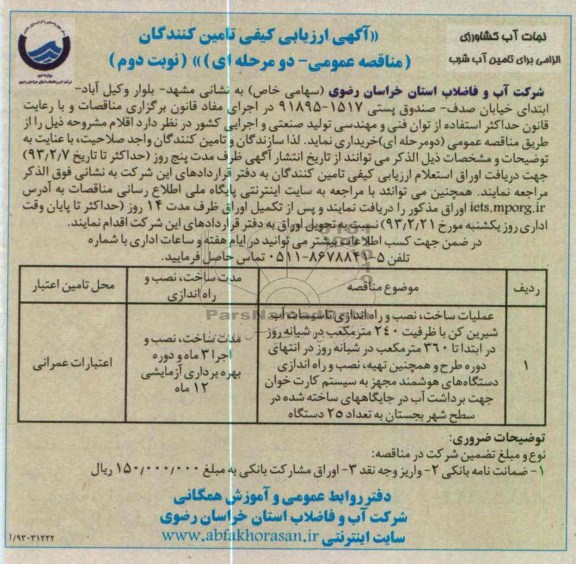 نجات آب کشاورزی
الزامی برای تامین آب شرب
«آگهی ارزیابی کیفی تامین کنندگان
(مناقصه عمومی- دو مرحله ای)» (نوبت دوم)
شرکت آب و فاضلاب استان خراسان رضوی (سهامی خاص) به نشانی مشهد- بلوار وکیل آباد-
ابتدای خیابان صدف- صندوق پستی ۱۵۱۷-۹۱۸۹۵ در اجرای مفاد قانون برگزاری مناقصات و با رعایت
قانون حداکثر استفاده از توان فنی و مهندسی تولید صنعتی و اجرایی کشور در نظر دارد اقلام مشروحه ذیل را از
طریق مناقصه عمومی (دومرحله ای)خریداری نماید. لذا سازندگان و تامین کنندگان واجد صلاحیت، با عنایت به
توضیحات و مشخصات ذیل الذکر می توانند از تاریخ انتشار آگهی ظرف مدت پنج روز (حداکثر تا تاریخ ۹۳/۲/۷)
جهت دریافت اوراق استعلام ارزیابی کیفی تامین کنندگان به دفتر قراردادهای این شرکت به نشانی فوق الذکر
مراجعه نمایند. همچنین می توانند با مراجعه به سایت اینترنتی پایگاه ملی اطلاع رسانی مناقصات به آدرس
iets.mporg.ir اوراق مذکور را دریافت نمایند و پس از تکمیل اوراق ظرف مدت ۱۴ روز (حداکثر تا پایان وقت
اداری روز یکشنبه مورخ ۹۳/۲/۲۱) نسبت به تحویل اوراق به دفتر قراردادهای این شرکت اقدام نمایند.
در ضمن جهت کسب اطلاعات بیشتر می توانید در ایام هفته و ساعات اداری با شماره
تلفن ۵-۸۶۷۸۸۴۱-۰۵۱۱ تماس حاصل فرمایید.
ردیف
موضوع مناقصه
مدت ساخت، نصب و
راه اندازی
محل تامین اعتبار
۱
عملیات ساخت، نصب و راه اندازی تاسیسات آب
شیرین کن با ظرفیت ۲۴۰ مترمکعب در شبانه روز
در ابتدا تا ۳۶۰ مترمکعب در شبانه روز در انتهای
دوره طرح و همچنین تهیه، نصب و راه اندازی
دستگاه‌های هوشمند مجهز به سیستم کارت خوان
جهت برداشت آب در جایگاههای ساخته شده در
سطح شهر بجستان به تعداد ۲۵ دستگاه
مدت ساخت، نصب و
اجرا ۳ ماه و دوره
بهره برداری آزمایشی
۱۲ ماه
اعتبارات عمرانی
توضیحات ضروری:
نوع و مبلغ تضمین شرکت در مناقصه:
۱- ضمانت نامه بانکی ۲- واریز وجه نقد ۳- اوراق مشارکت بانکی به مبلغ ۱۵۰,۰۰۰,۰۰۰ ریال
دفتر روابط عمومی و آموزش همگانی
شرکت آب و فاضلاب استان خراسان رضوی
سایت اینترنتی www.abfakhorasan.ir
/۹۳۰۳۱۲۲۲